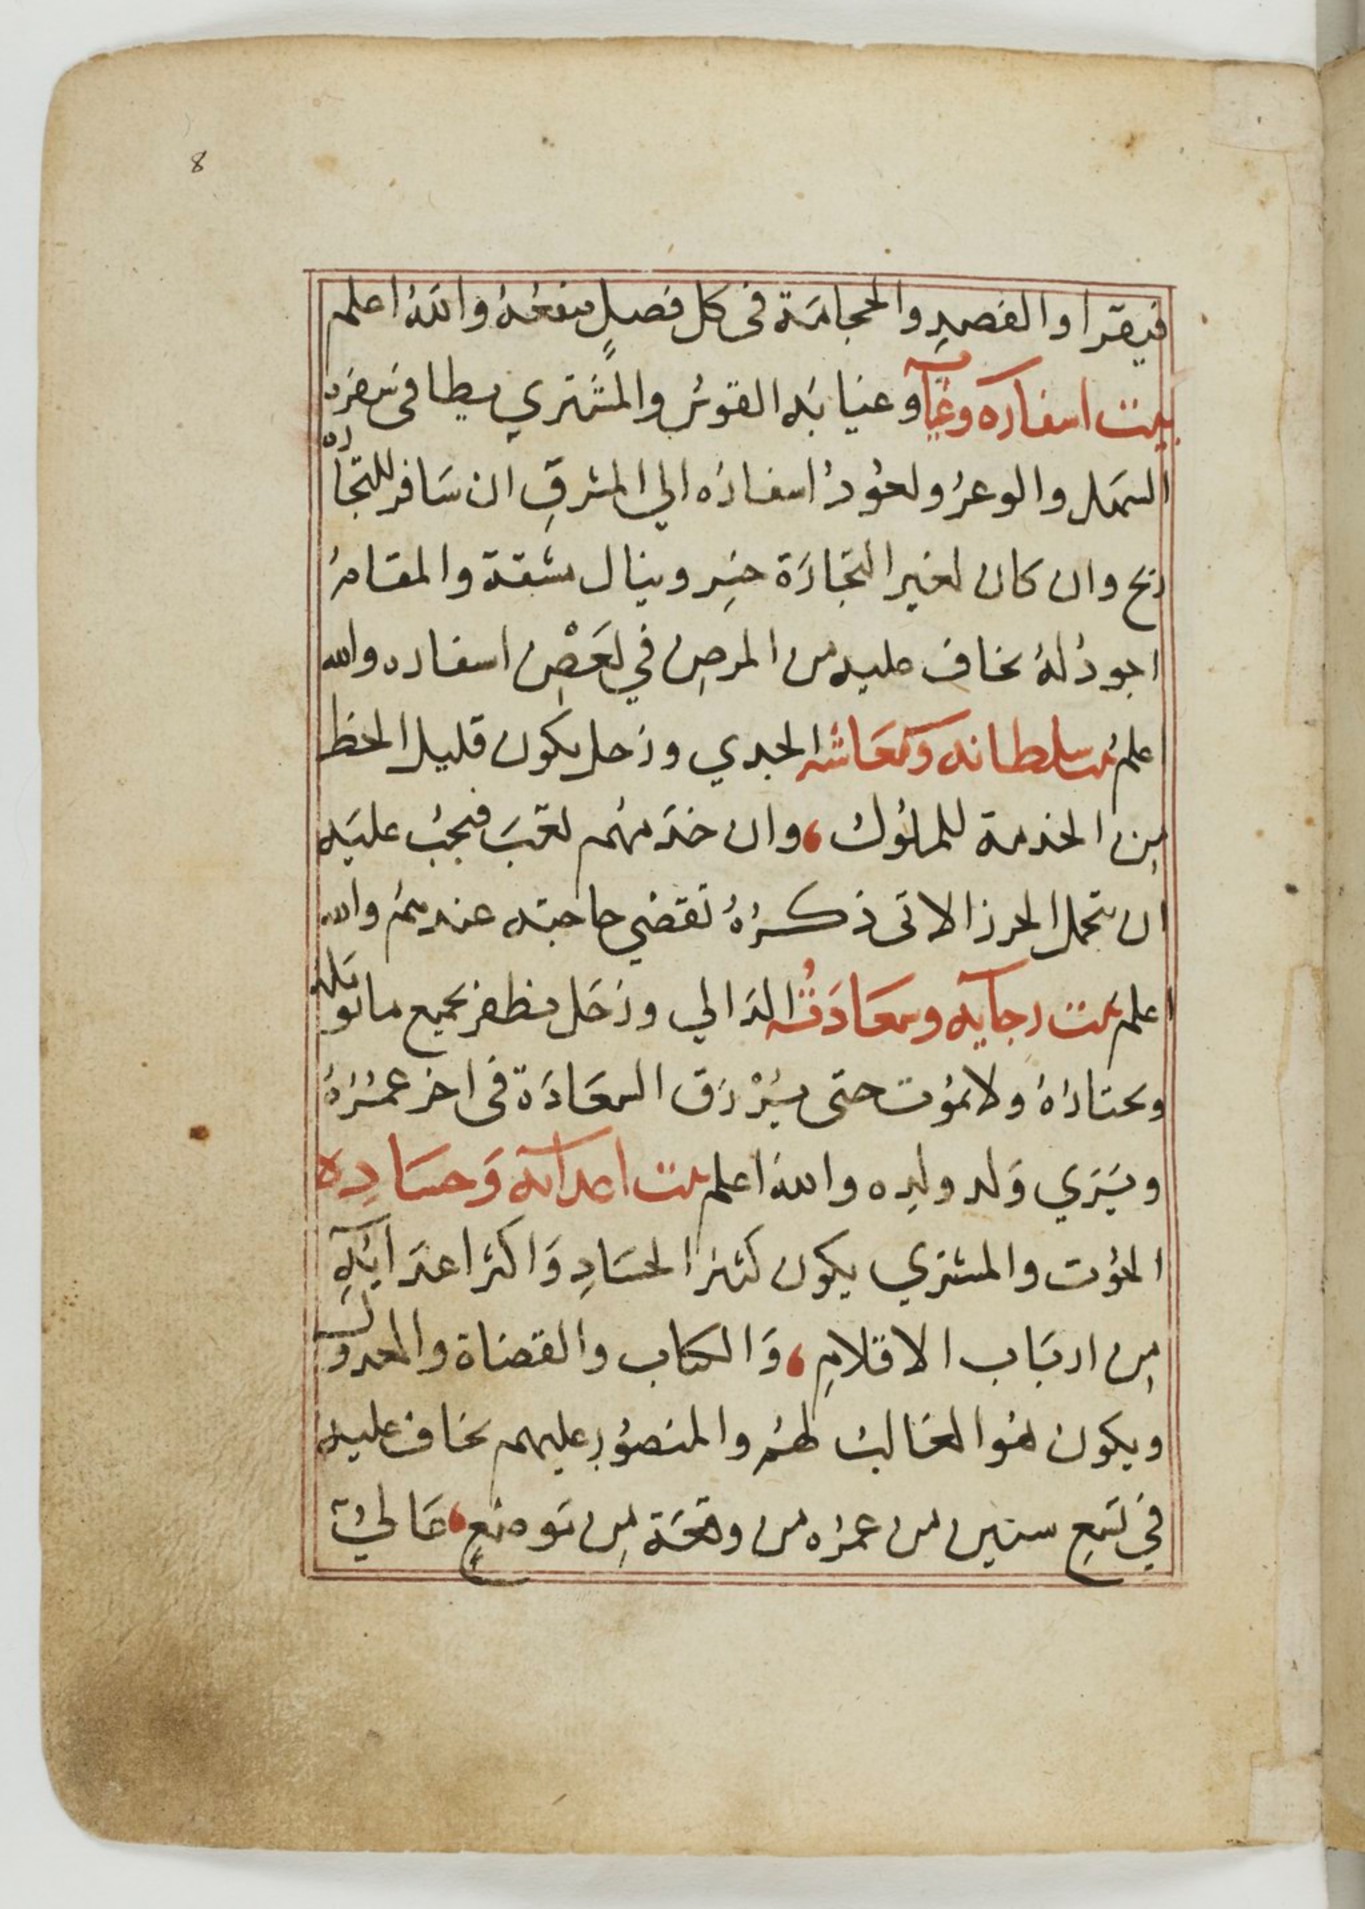 8
فيقرا والفصدِ والحجامَة فى كل فصلٍ منفعُهُ واللهُ اعلم
بيت اسفاره وغيا وعنيابَه القوسُ والمشتري يطا فى سفره
السَهل والوعرُ ولعُودُ اسفارُه الي المشرقِ ان سَافر للتجَارَه
ربح وان كان لغير التجَارَة خسِر وينال مشقة والمقامُ
اجودُ لهُ يخاف عليه من المرضِ في بَعْضِ اسفاره والله
اعلمُ بيت سلطانه ومعَاشه الجدي وزحل يكون قليل الحظ
مِن الخدمة للملُوك، وان خدَمهُم تعَبَ فيجبُ عليَه
ان يتحمل الحرز الاتى ذكرُهُ تقضي حاجته عندهُم والله
اعلم بيت رجايه وسعَادَتُه الدَالي وزحَل يظفر بجميع ما يوملَه
ويختارُهُ ولا يمُوت حتى يُرْزَق السعَادَة فى اخر عمُرُهُ
ويَرَي وَلد ولِده واللهُ اعلم بيت اعدآيه وَحسَادِه
الحُوت والمشتري يكون كثير الحسَادِ وَاكثر اعدَايَهِ
مِن اربَاب الاقلامِ، وَالكتاب والقضاة والعدول
ويكون هُوَ الغالبُ لهُم والمنصُور عليهم يخاف عليه
في تسعِ سنين من عمرُه من وقعَة مِن مَوضعٍ، عَاليٍ